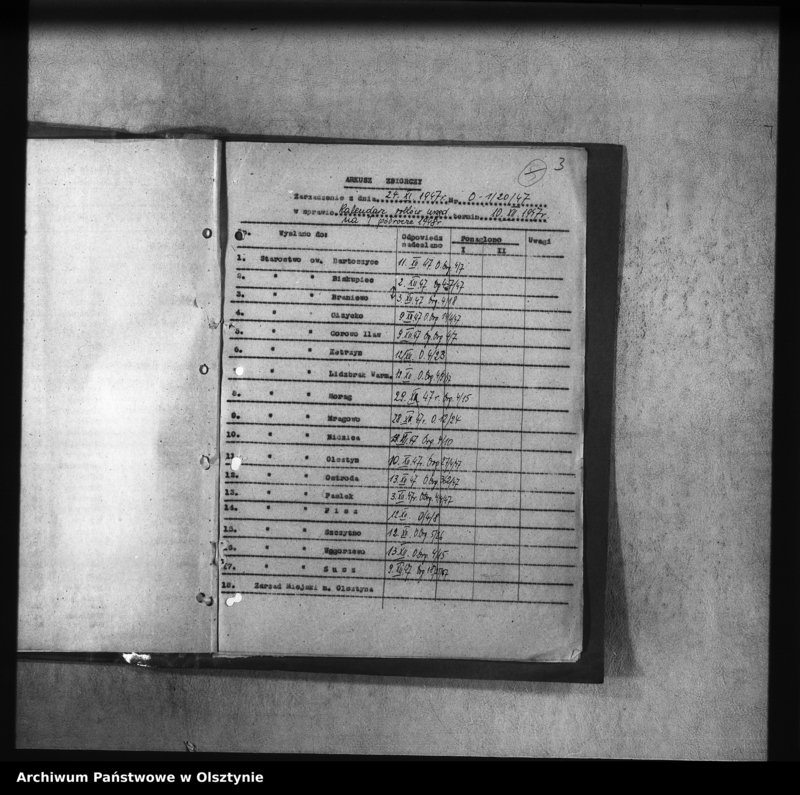 3
ARKUSZ ZBIORCZY
Zarządzenie z dnia 24. XI 1947r. Nr. O-1/20/47
w sprawie Kalendarz termin 10. XII 1947r.
Wysłano do: Odpowiedź nadesłano Ponaglono I II Uwagi
1. Starostwo ow. Bartoszyce 11. XII 47 O.Org 4/7
2. " " Biskupiec 2. XII 47
3. " " Braniewo 3. XII 47 Org. 4/18
4. " " Giżycko 9 XII 47
5. " " Górowo Iław 9 XII 47 Org 4/7
6. " " Kętrzyn 12/XII. O. 4/23
7. " " Lidzbark Warm. 12. XII O.Org
8. " " Morąg 29. XII 47 r. Org. 4/15
9. " " Mrągowo 28 XII 47r. O-12/24
10. " " Nidzica XII 47 Org 4/10
11. " " Olsztyn 10. XII 47.
12. " " Ostróda 13. XII 47 O.Org
13. " " Pasłęk 3. XII 47r.
14. " " Pisz 12 XII. O/4/8
15. " " Szczytno 12. XII. O.Org 5/26
16. " " Węgorzewo 13 XII. O.Org 4/15
17. " " Susz 9. XII 47 Org
18. Zarząd Miejski m. Olsztyna
Archiwum Państwowe w Olsztynie